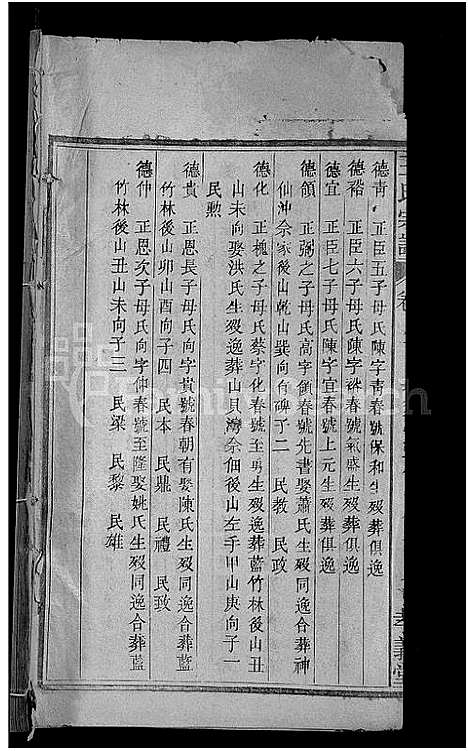 王氏宗譜 卷
孝義堂
德青 正臣五子母氏陳字青春號保和生歿葬俱逸
德裕 正臣六子母氏陳字裕春號氣盛生歿葬俱逸
德宜 正臣七子母氏陳字宜春號上元生歿葬俱逸
德領 正弼之子母氏高字領春號先書娶蕭氏生歿同逸合葬神
仙沖佘家後山乾山巽向有碑子二 民教 民政
德化 正槐之子母氏蔡字化春號至男生歿逸葬藍竹林後山丑
山未向娶洪氏生歿逸葬山貝灣佘佃後山左手甲山庚向子一
民勲
德貴 正恩長子母氏向字貴號春朝有娶陳氏生歿同逸合葬藍
竹林後山卯山酉向子四 民本 民鼎 民禮 民政
德仲 正恩次子母氏向字仲春號至隆娶姚氏生歿同逸合葬藍
竹林後山丑山未向子三 民梁 民黎 民雄